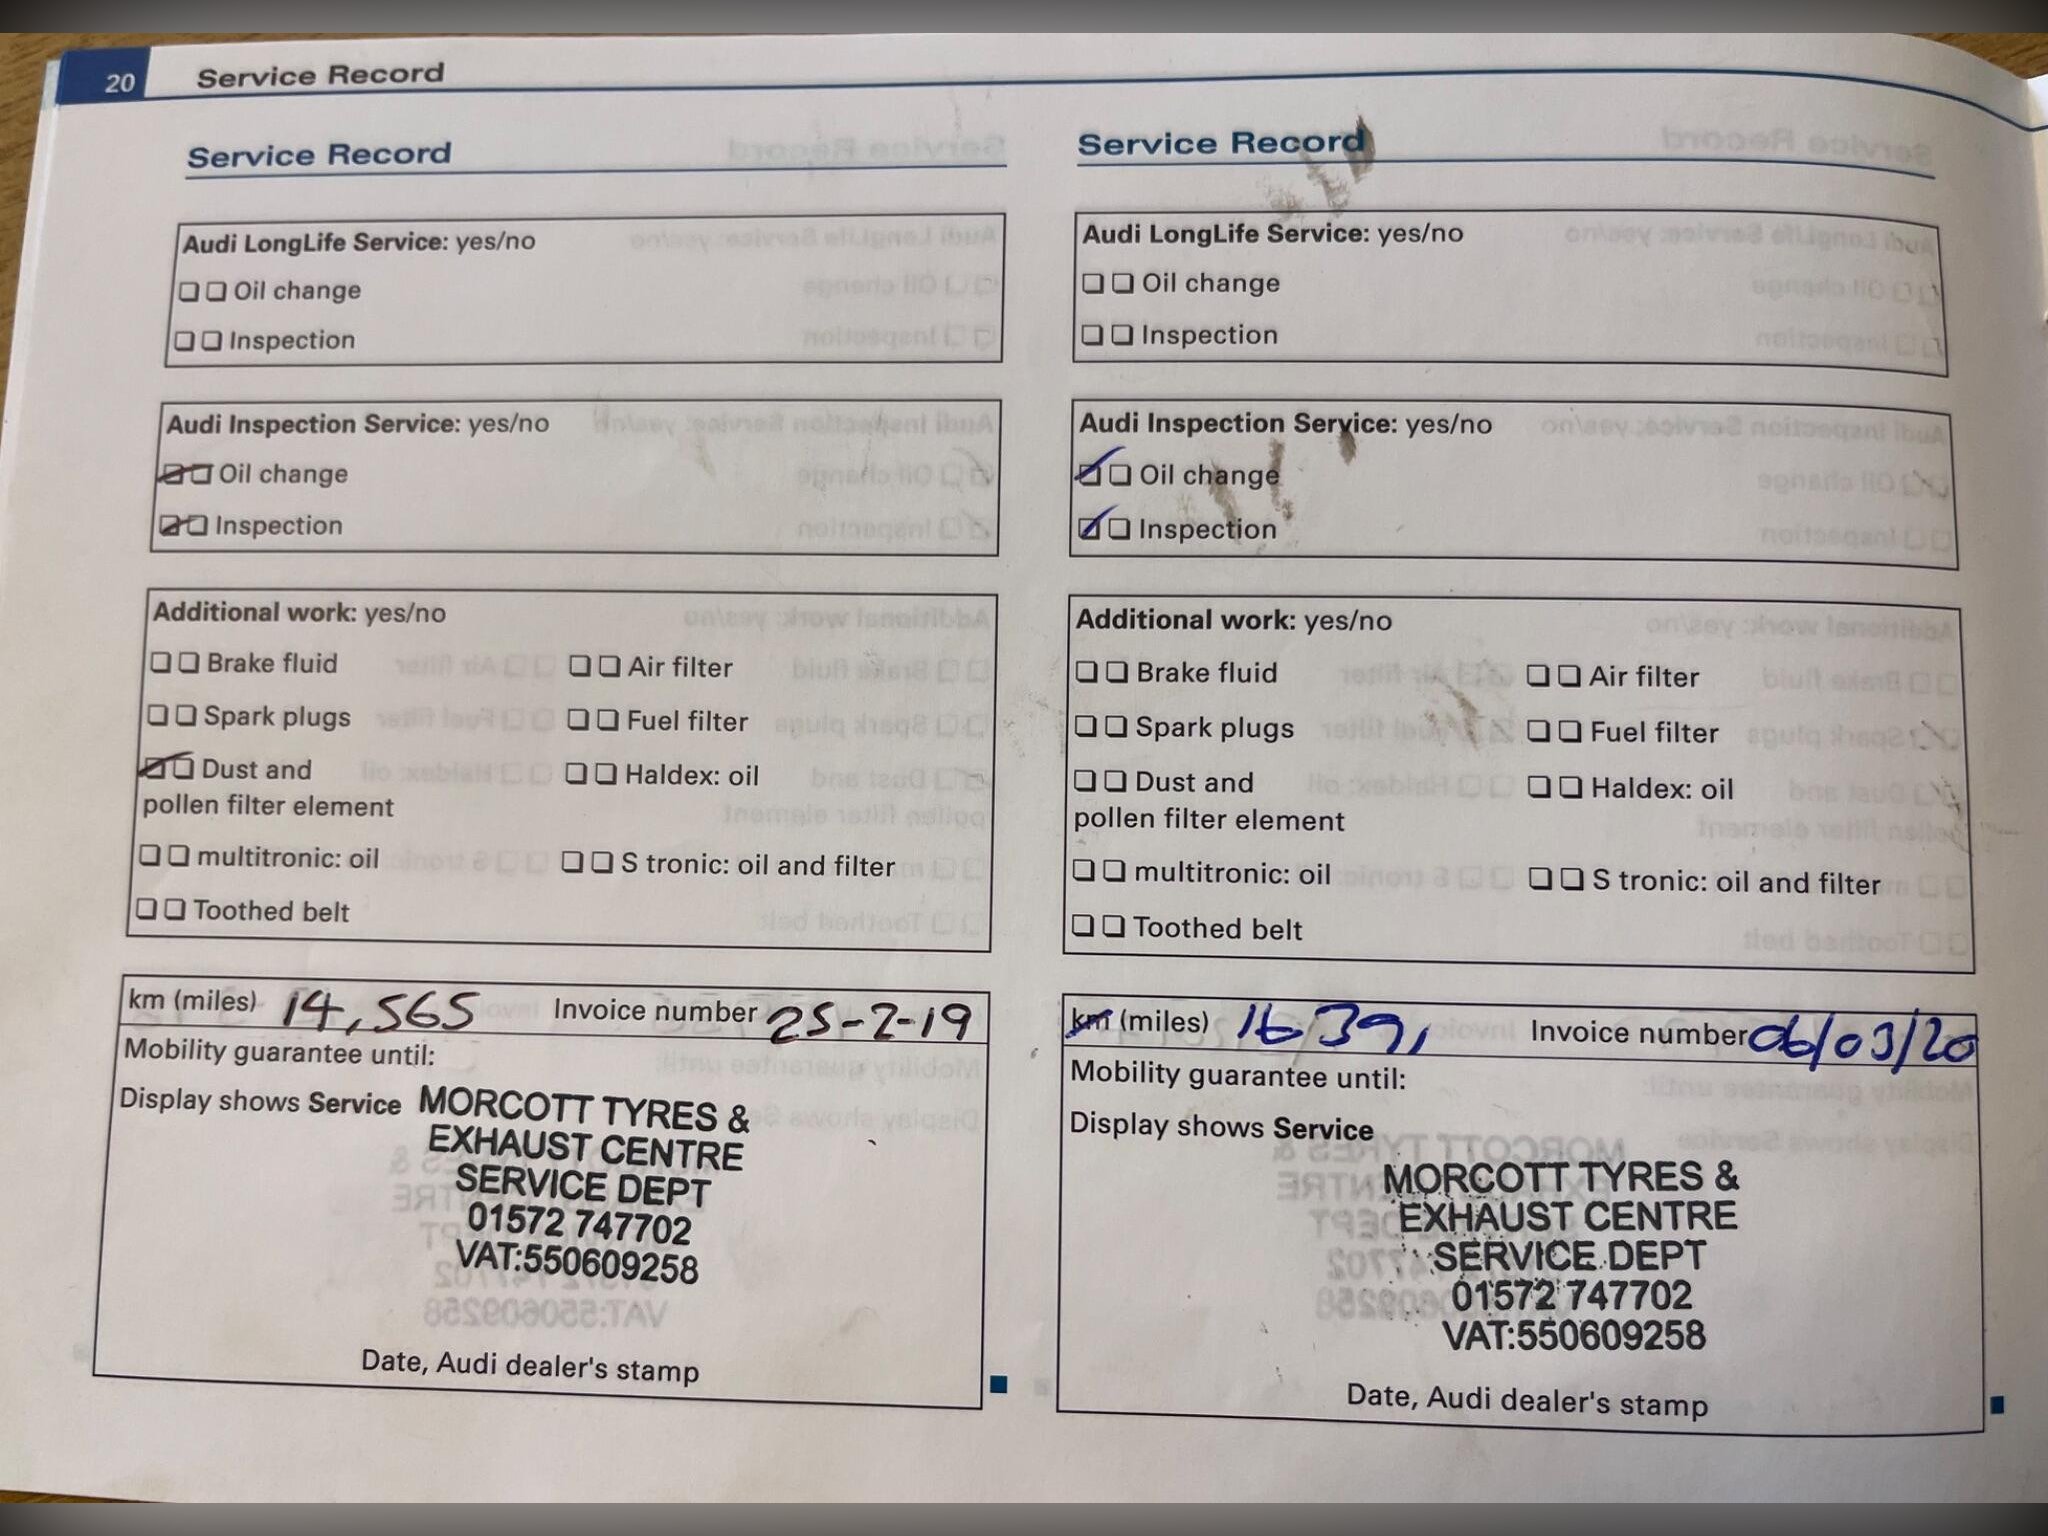 20 Service Record
Service Record
Audi LongLife Service: yes/no
Oil change
Inspection
Audi Inspection Service: yes/no
Oil change
Inspection
Additional work: yes/no
Brake fluid Air filter
Spark plugs Fuel filter
Dust and Haldex: oil
pollen filter element
multitronic: oil S tronic: oil and filter
Toothed belt
km (miles) 14,565 Invoice number 25-2-19
Mobility guarantee until:
Display shows Service
MORCOTT TYRES &
EXHAUST CENTRE
SERVICE DEPT
01572 747702
VAT:550609258
Date, Audi dealer's stamp
Service Record
Audi LongLife Service: yes/no
Oil change
Inspection
Audi Inspection Service: yes/no
Oil change
Inspection
Additional work: yes/no
Brake fluid Air filter
Spark plugs Fuel filter
Dust and Haldex: oil
pollen filter element
multitronic: oil S tronic: oil and filter
Toothed belt
km (miles) Invoice number 06/03/20
Mobility guarantee until:
Display shows Service
MORCOTT TYRES &
EXHAUST CENTRE
SERVICE DEPT
01572 747702
VAT:550609258
Date, Audi dealer's stamp